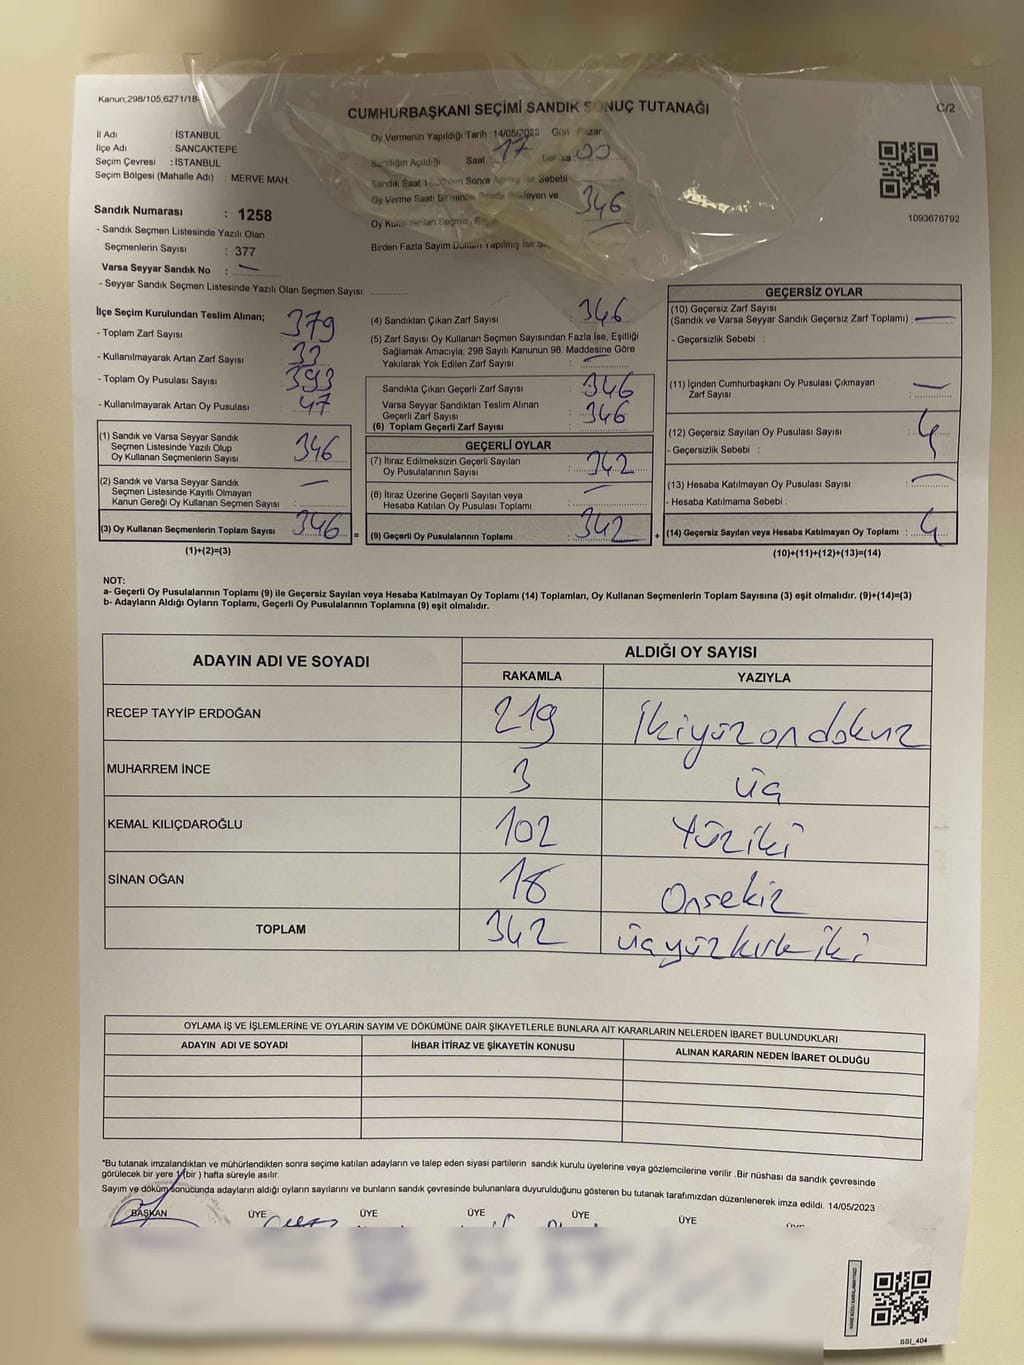 Kanun,298/105,6271/18-
C/2
CUMHURBAŞKANI SEÇİMİ SANDIK SONUÇ TUTANAĞI
İl Adı : İSTANBUL
İlçe Adı : SANCAKTEPE
Seçim Çevresi : İSTANBUL
Seçim Bölgesi (Mahalle Adı) : MERVE MAH.
Sandık Numarası : 1258
- Sandık Seçmen Listesinde Yazılı Olan
Seçmenlerin Sayısı : 377
Varsa Seyyar Sandık No : —
- Seyyar Sandık Seçmen Listesinde Yazılı Olan Seçmen Sayısı: ..........
Oy Vermenin Yapıldığı Tarih : 14/05/2023 Gün : Pazar
Sandığın Açıldığı Saat 17 00
Sandık Saat Sonra Sebebi
Oy Verme Saati ve
346
Birden Fazla Sayım Döküm Yapılmış İse
1093676792
İlçe Seçim Kurulundan Teslim Alınan;
- Toplam Zarf Sayısı : 379
- Kullanılmayarak Artan Zarf Sayısı : 33
- Toplam Oy Pusulası Sayısı : 393
- Kullanılmayarak Artan Oy Pusulası : 47
(1) Sandık ve Varsa Seyyar Sandık
Seçmen Listesinde Yazılı Olup
Oy Kullanan Seçmenlerin Sayısı 346
(2) Sandık ve Varsa Seyyar Sandık
Seçmen Listesinde Kayıtlı Olmayan
Kanun Gereği Oy Kullanan Seçmen Sayısı : —
(3) Oy Kullanan Seçmenlerin Toplam Sayısı 346
(1)+(2)=(3)
(4) Sandıktan Çıkan Zarf Sayısı : 346
(5) Zarf Sayısı Oy Kullanan Seçmen Sayısından Fazla İse, Eşitliği
Sağlamak Amacıyla, 298 Sayılı Kanunun 98. Maddesine Göre
Yakılarak Yok Edilen Zarf Sayısı : —
Sandıkta Çıkan Geçerli Zarf Sayısı : 346
Varsa Seyyar Sandıktan Teslim Alınan
Geçerli Zarf Sayısı : 346
(6) Toplam Geçerli Zarf Sayısı :
GEÇERLİ OYLAR
(7) İtiraz Edilmeksizin Geçerli Sayılan
Oy Pusulalarının Sayısı : 342
(8) İtiraz Üzerine Geçerli Sayılan veya
Hesaba Katılan Oy Pusulası Toplamı : —
(9) Geçerli Oy Pusulalarının Toplamı : 342
GEÇERSİZ OYLAR
(10) Geçersiz Zarf Sayısı
(Sandık ve Varsa Seyyar Sandık Geçersiz Zarf Toplamı) : —
- Geçersizlik Sebebi :
(11) İçinden Cumhurbaşkanı Oy Pusulası Çıkmayan
Zarf Sayısı : —
(12) Geçersiz Sayılan Oy Pusulası Sayısı : 4
- Geçersizlik Sebebi :
(13) Hesaba Katılmayan Oy Pusulası Sayısı : —
- Hesaba Katılmama Sebebi :
(14) Geçersiz Sayılan veya Hesaba Katılmayan Oy Toplamı : 4
(10)+(11)+(12)+(13)=(14)
NOT:
a- Geçerli Oy Pusulalarının Toplamı (9) ile Geçersiz Sayılan veya Hesaba Katılmayan Oy Toplamı (14) Toplamları, Oy Kullanan Seçmenlerin Toplam Sayısına (3) eşit olmalıdır. (9)+(14)=(3)
b- Adayların Aldığı Oyların Toplamı, Geçerli Oy Pusulalarının Toplamına (9) eşit olmalıdır.
ADAYIN ADI VE SOYADI ALDIĞI OY SAYISI
RAKAMLA YAZIYLA
RECEP TAYYİP ERDOĞAN 219 İkiyüz on dokuz
MUHARREM İNCE 3 üç
KEMAL KILIÇDAROĞLU 102 Yüziki
SİNAN OĞAN 18 Onsekiz
TOPLAM 342 üçyüzkırkiki
OYLAMA İŞ VE İŞLEMLERİNE VE OYLARIN SAYIM VE DÖKÜMÜNE DAİR ŞİKAYETLERLE BUNLARA AİT KARARLARIN NELERDEN İBARET BULUNDUKLARI
ADAYIN ADI VE SOYADI İHBAR İTİRAZ VE ŞİKAYETİN KONUSU ALINAN KARARIN NEDEN İBARET OLDUĞU
*Bu tutanak imzalandıktan ve mühürlendikten sonra seçime katılan adayların ve talep eden siyasi partilerin sandık kurulu üyelerine veya gözlemcilerine verilir .Bir nüshası da sandık çevresinde
görülecek bir yere 1 (bir ) hafta süreyle asılır.
Sayım ve döküm sonucunda adayların aldığı oyların sayılarını ve bunların sandık çevresinde bulunanlara duyurulduğunu gösteren bu tutanak tarafımızdan düzenlenerek imza edildi. 14/05/2023
BAŞKAN ÜYE ÜYE ÜYE ÜYE ÜYE ÜYE
SSI_404